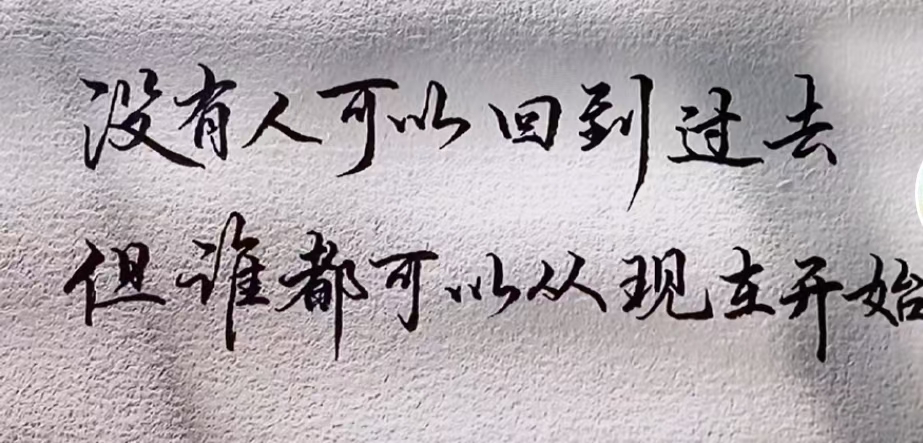 没有人可以回到过去
但谁都可以从现在开始